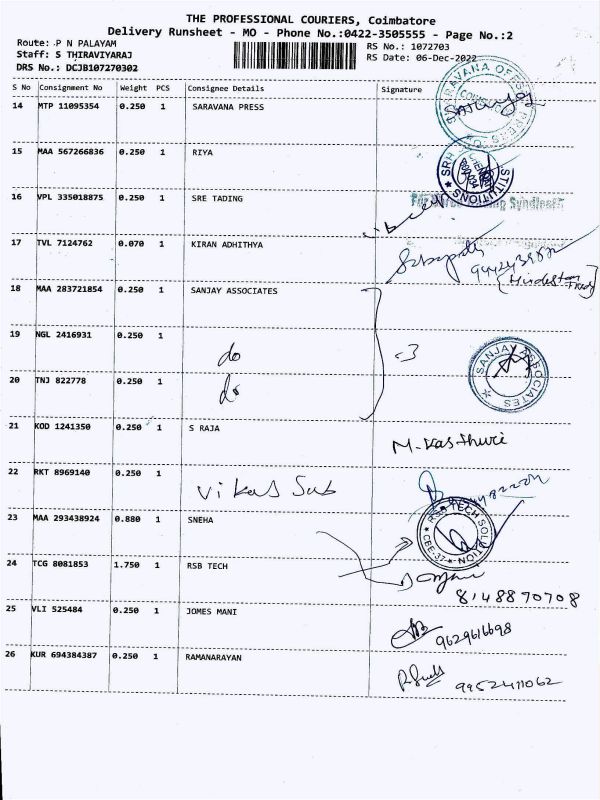 THE PROFESSIONAL COURIERS, Coimbatore
Delivery Runsheet - MO - Phone No.:0422-3505555 - Page No.:2
Route: P N PALAYAM
Staff: S THIRAVIYARAJ
DRS No.: DCJB107270302
RS No.: 1072703
RS Date: 06-Dec-2022
S No Consignment No Weight PCS Consignee Details Signature
14 MTP 11095354 0.250 1 SARAVANA PRESS
15 MAA 567266836 0.250 1 RIYA
16 VPL 335018875 0.250 1 SRE TADING
17 TVL 7124762 0.070 1 KIRAN ADHITHYA
18 MAA 283721854 0.250 1 SANJAY ASSOCIATES
19 NGL 2416931 0.250 1 do
-3
SANJAY ASSOCIATES
20 TNJ 822778 0.250 1 do
21 KOD 1241350 0.250 1 S RAJA M. Kasthuri
22 RKT 8969140 0.250 1 Vikas Sub
23 MAA 293438924 0.880 1 SNEHA
RSB TECH SOLUTION CBE-37
24 TCG 8081853 1.750 1 RSB TECH
8148870708
25 VLI 525484 0.250 1 JOMES MANI 9629616698
26 KUR 694384387 0.250 1 RAMANARAYAN 9952411062